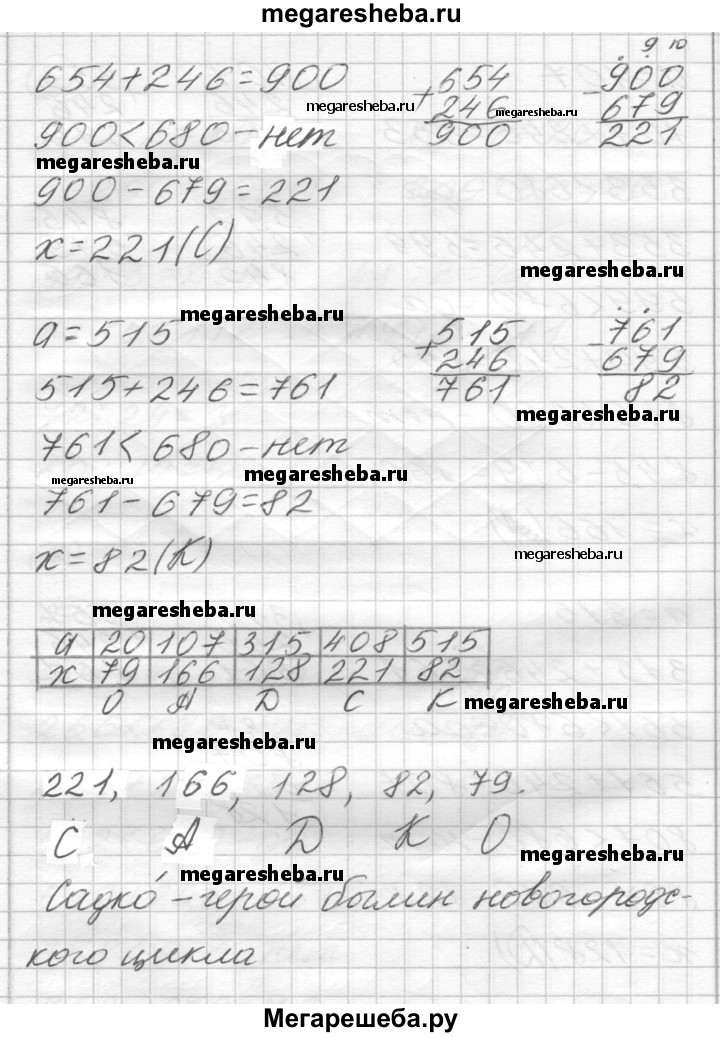 megaresheba.ru
654+246=900
654
+
246
900
9 10
900
-
679
221
megaresheba.ru
megaresheba.ru
900<680-нет
megaresheba.ru
900-679=221
x=221(С)
megaresheba.ru
megaresheba.ru
a=515
515
+
246
761
761
-
679
82
515+246=761
megaresheba.ru
761<680-нет
megaresheba.ru
megaresheba.ru
761-679=82
x=82(К)
megaresheba.ru
megaresheba.ru
a 20 107 315 408 515
x 79 166 128 221 82
О А Д С К
megaresheba.ru
megaresheba.ru
221, 166, 128, 82, 79.
С А Д К О
megaresheba.ru
megaresheba.ru
Садко́ - герой былин новогородс-
кого цикла
Мегарешеба.ру